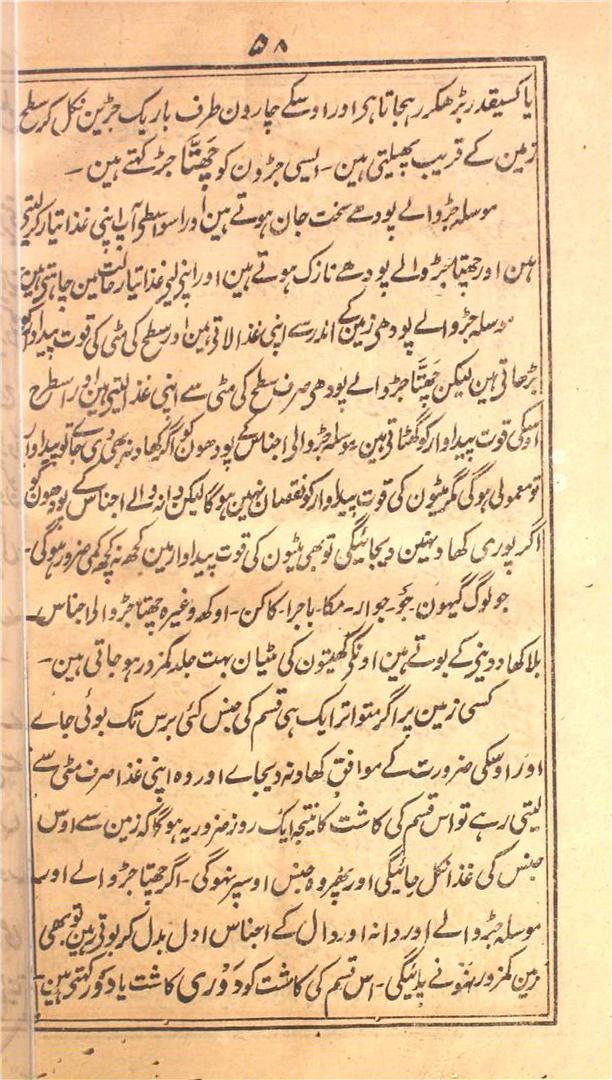 ۵۸
یا کسیقدر بڑھکر رہجاتا ہی اور اوسکے چارون طرف باریک جڑین نکل کر سطح
زمین کے قریب پھیلتی ہین - ایسی جڑون کو چَھتَّا جڑ کہتے ہین -
موسلہ جڑ والے پودھے سخت جان ہوتے ہین اور اسواسطی آپ اپنی غذا تیار کر لیتی
ہین اور چھتّا جڑ والے پودھے نازک ہوتے ہین اور اپنی لیی غذا تیار حالت مین چاہتی ہین
موسلہ جڑ والے پودھی زمین کے اندر سے اپنی غذا لاتی ہین اور سطح کی مٹی کی قوت پیداوار کو
بڑھاتی ہین لیکن چَھتَّا جڑ والے پودھی صرف سطح کی مٹی سے اپنی غذا لیتی ہین اور اسطرح
اوسکی قوت پیداوار کو گھٹاتی ہین موسلہ جڑ والی اجناس کے پودھون کو اگر کھاد نہ بھی دی جاے تو پیداوار
تو معمولی ہوگی مگر مٹیون کی قوت پیداوار کو نقصان نہین ہوگا لیکن دانہ والے اجناس کے پودھون کو
اگر پوری کھاد نہین دیجائیگی تو بھی مٹیون کی قوت پیداوار مین کچھ نہ کچھ کمی ضرور ہوگی -
جو لوگ گیہون - جَو - جوار - مکا - باجرا - کاکن - اوکھ وغیرہ چھتّا جڑ والی اجناس
بلا کھاد دینی کے بوتے ہین اونکی کھیتون کی مٹیان بہت جلد کمزور ہو جاتی ہین -
کسی زمین پر اگر متواتر ایک ہی قسم کی جنس کئی برس تک بوئی جاے
اور اوسکی ضرورت کے موافق کھاد نہ دیجاے اور وہ اپنی غذا صرف مٹی سے
لیتی رہے تو اس قسم کی کاشت کا نتیجہ ایک روز ضرور یہ ہوگا کہ زمین سے اوس
جنس کی غذا نکل جائیگی اور پھر وہ جنس اوسپر نہوگی - اگر چھتّا جڑ والے اور
موسلہ جڑ والے اور دانہ اور دال کے اجناس ادل بدل کر بوتی رہین تو بھی
زمین کمزور نہونے پائیگی - اس قسم کی کاشت کو دَوْری کاشت یا دَور کہتی ہین